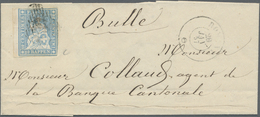 Bulle
Monsieur
Monsieur Collaud, agent de
la Banque Cantonale